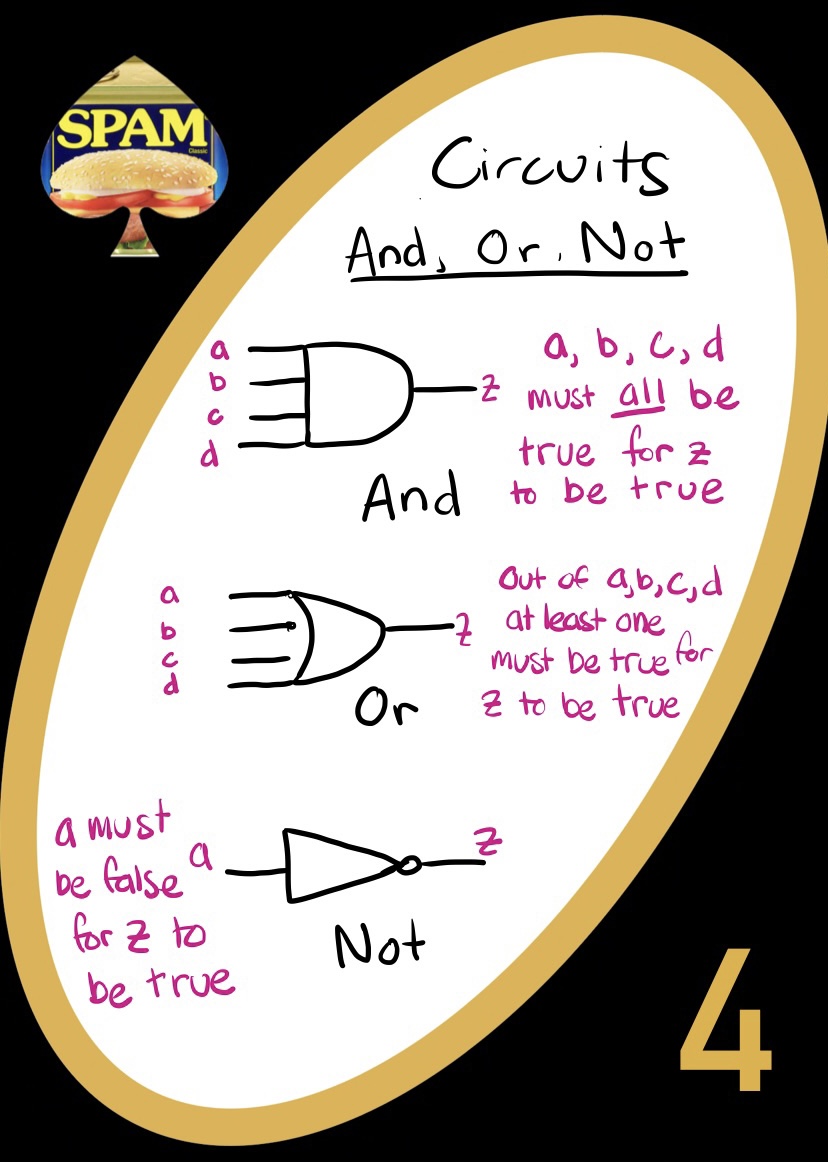 SPAM
Classic
Circuits
And, Or, Not
a
b
c
d
z
a, b, c, d
must all be
true for z
to be true
And
a
b
c
d
z
Out of a,b,c,d
at least one
must be true for
z to be true
Or
a must
be false
for z to
be true
a
z
Not
4